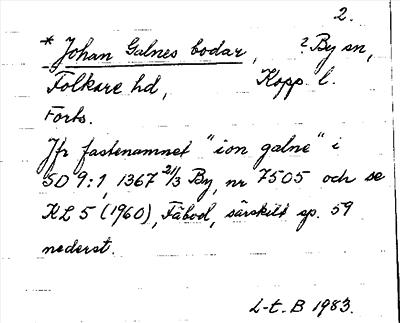 2.
* Johan Galnes bodar, ? By sn,
Folkare hd, Kopp. l.
Forts.
Jfr fastenamnet "ion galne" i
SD 9:1, 1367 21/3 By, nr 7505 och se
KL 5 (1960), Fäbod, särskilt sp. 59
nederst.
L-t. B 1983.